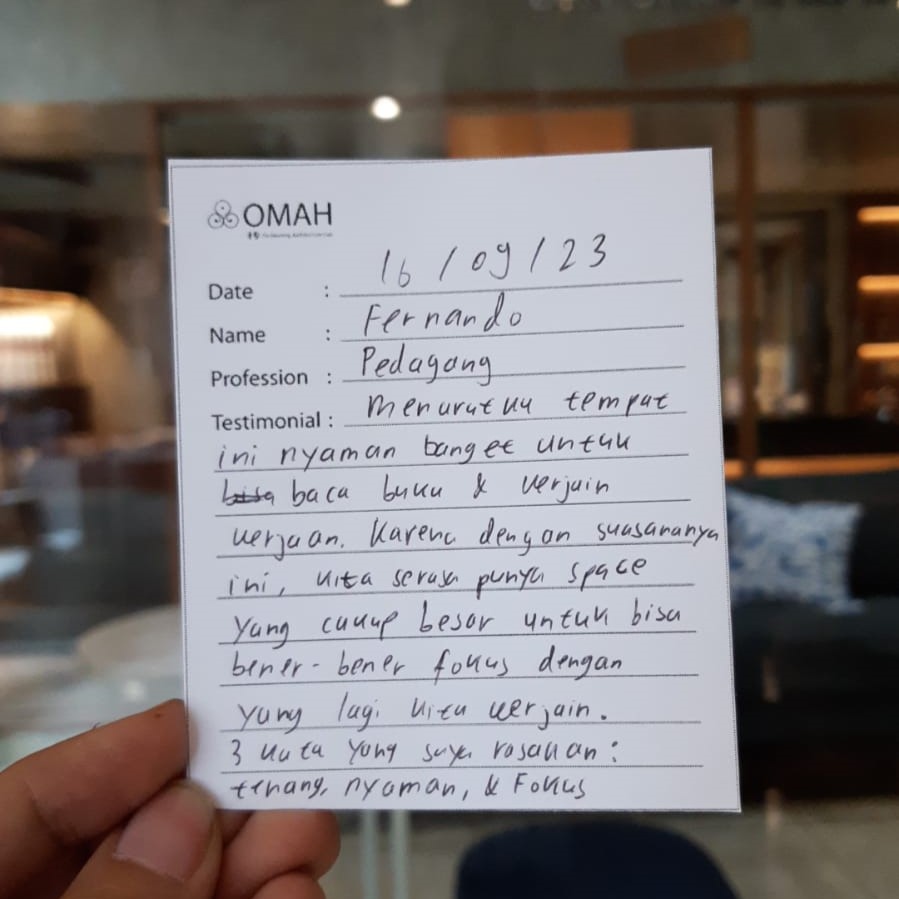 OMAH
Date : 16/09/23
Name : Fernando
Profession : Pedagang
Testimonial : Menurutku tempat
ini nyaman banget untuk
baca buku & kerjain
kerjaan. Karena dengan suasananya
ini, kita serasa punya space
yang cukup besar untuk bisa
bener-bener fokus dengan
yang lagi kita kerjain.
3 kata yang saya rasakan:
tenang, nyaman, & Fokus